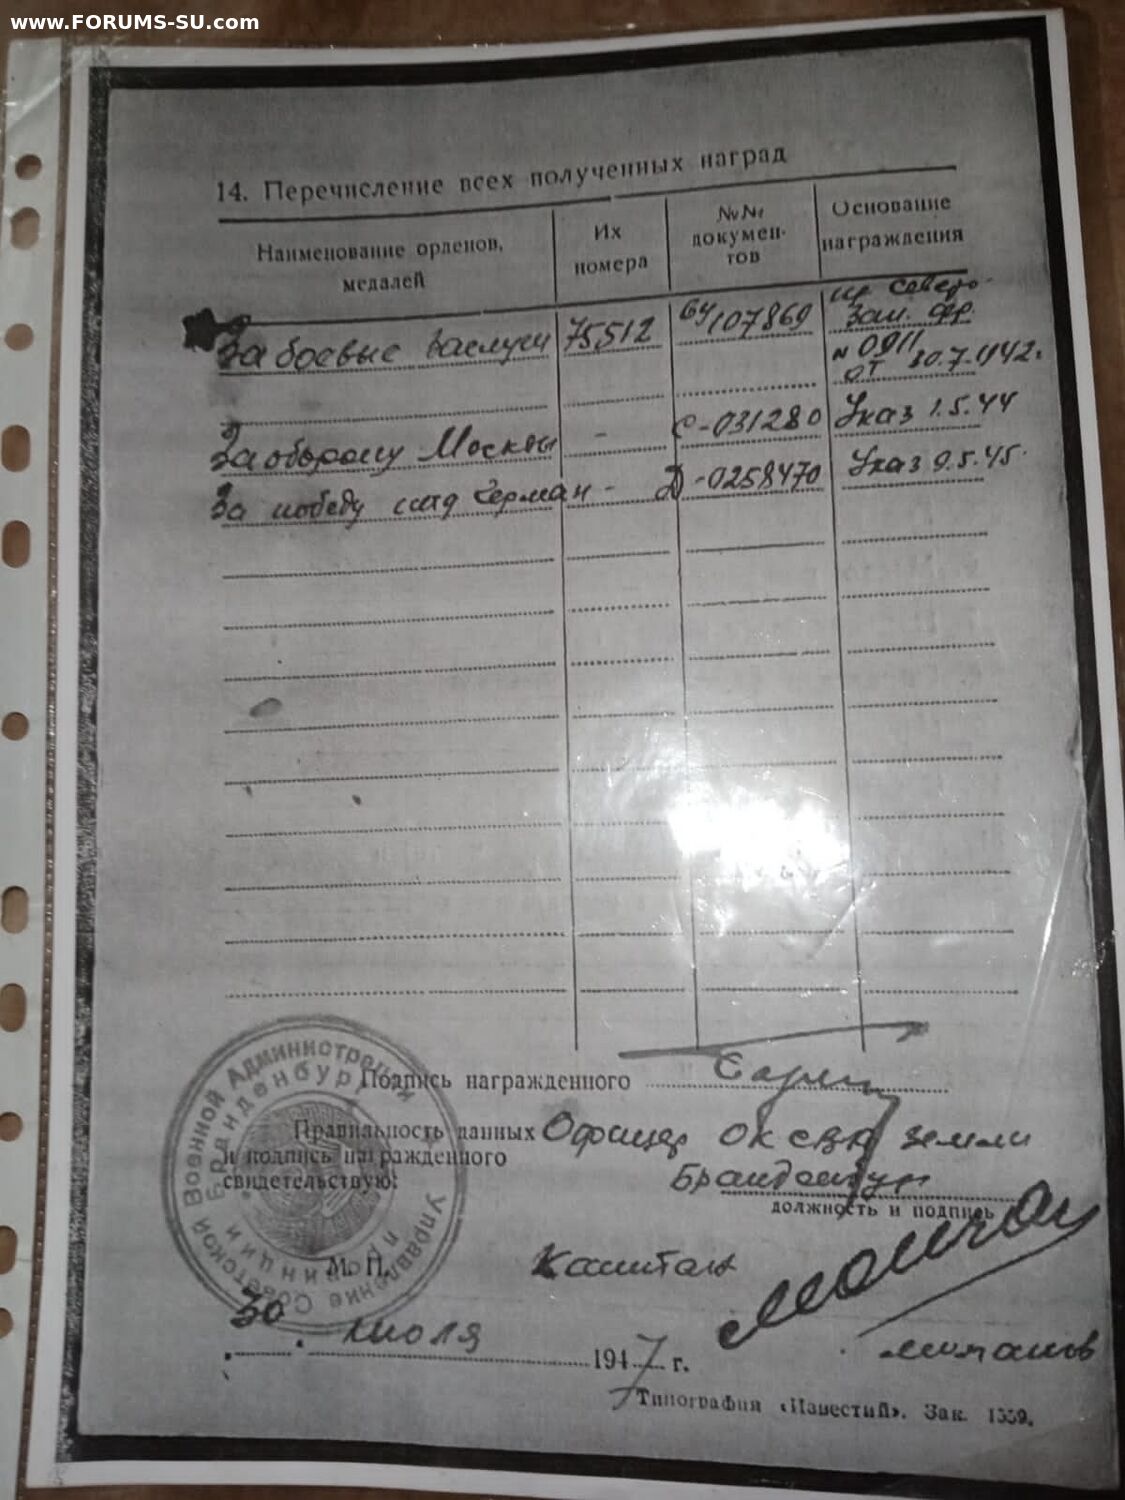 www.FORUMS-SU.com
14. Перечисление всех полученных наград
Наименование орденов, медалей
Их номера
№№ документов
Основание награждения
За боевые заслуги 75512 БЧ/107869 пр Северо-
Зап. Фр.
N 0911
от 30.7.1942г
За оборону Москвы - С-031280 Указ 1.5.44
За победу над Герман - Д-0258470 Указ 9.5.45.
Подпись награжденного
Правильность данных Офицер ОК СВА земли
и подпись награжденного Бранденбург
свидетельствую:
должность и подпись
М. П. Капитан
30 июля 1947 г.
Типография «Известий». Зак. 1339.
Управление Советской Военной Администрации
провинции Бранденбург